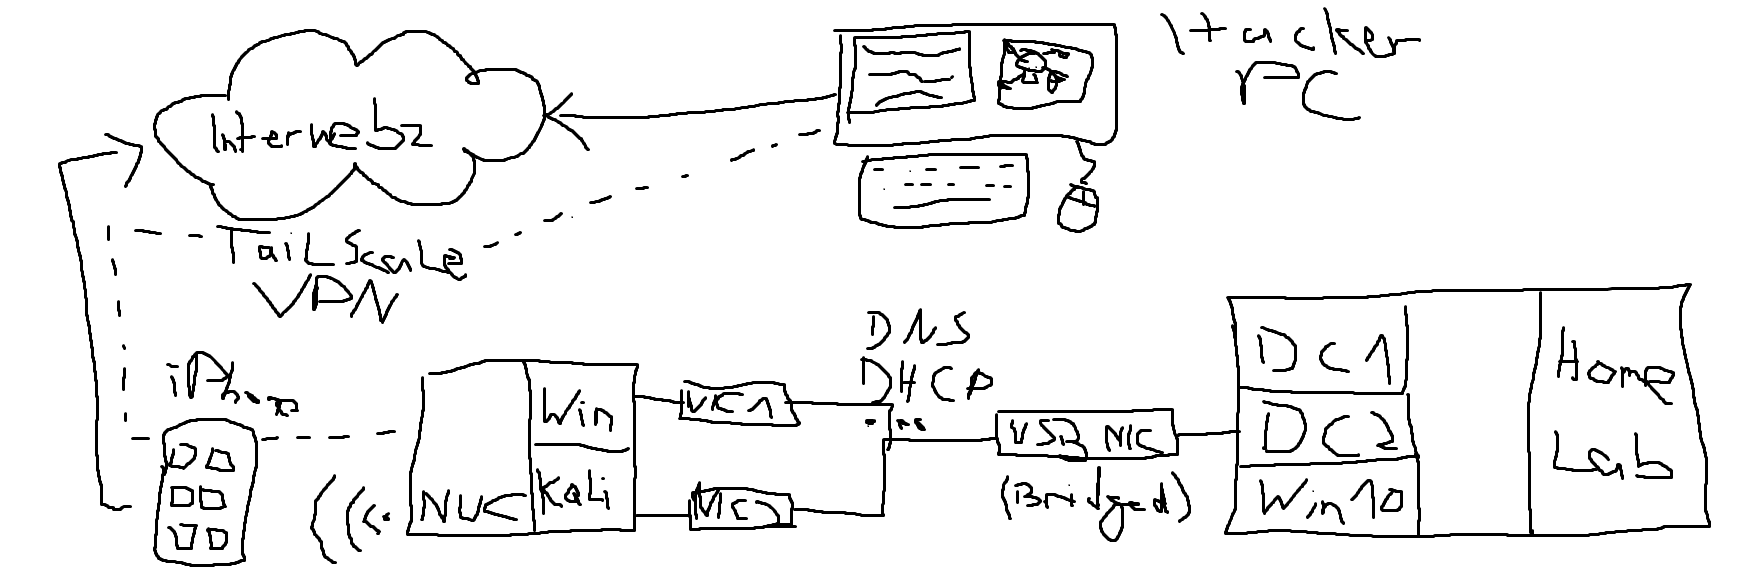 Interwebz
Attacker
PC
TailScale
VPN
iPhone
NUC
Win
Kali
NIC1
NIC2
DNS
DHCP
...
USB NIC
(Bridged)
DC1
DC2
Win10
Home
Lab